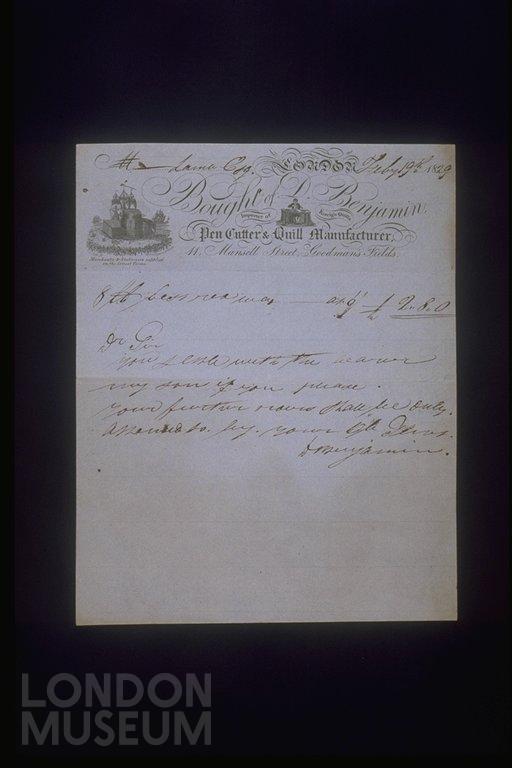 LONDON Feby 19th 1829
Bought of D. Benjamin,
Importer of Foreign Quills
Pen Cutter & Quill Manufacturer,
11, Mansell Street, Goodman's Fields.
Merchants & Stationers supplied
on the lowest Terms
2. 8. 0
Dr Sir
you settle with the bearer
my son if you please.
your further orders shall be duly
by your
D Benjamin.
LONDON
MUSEUM